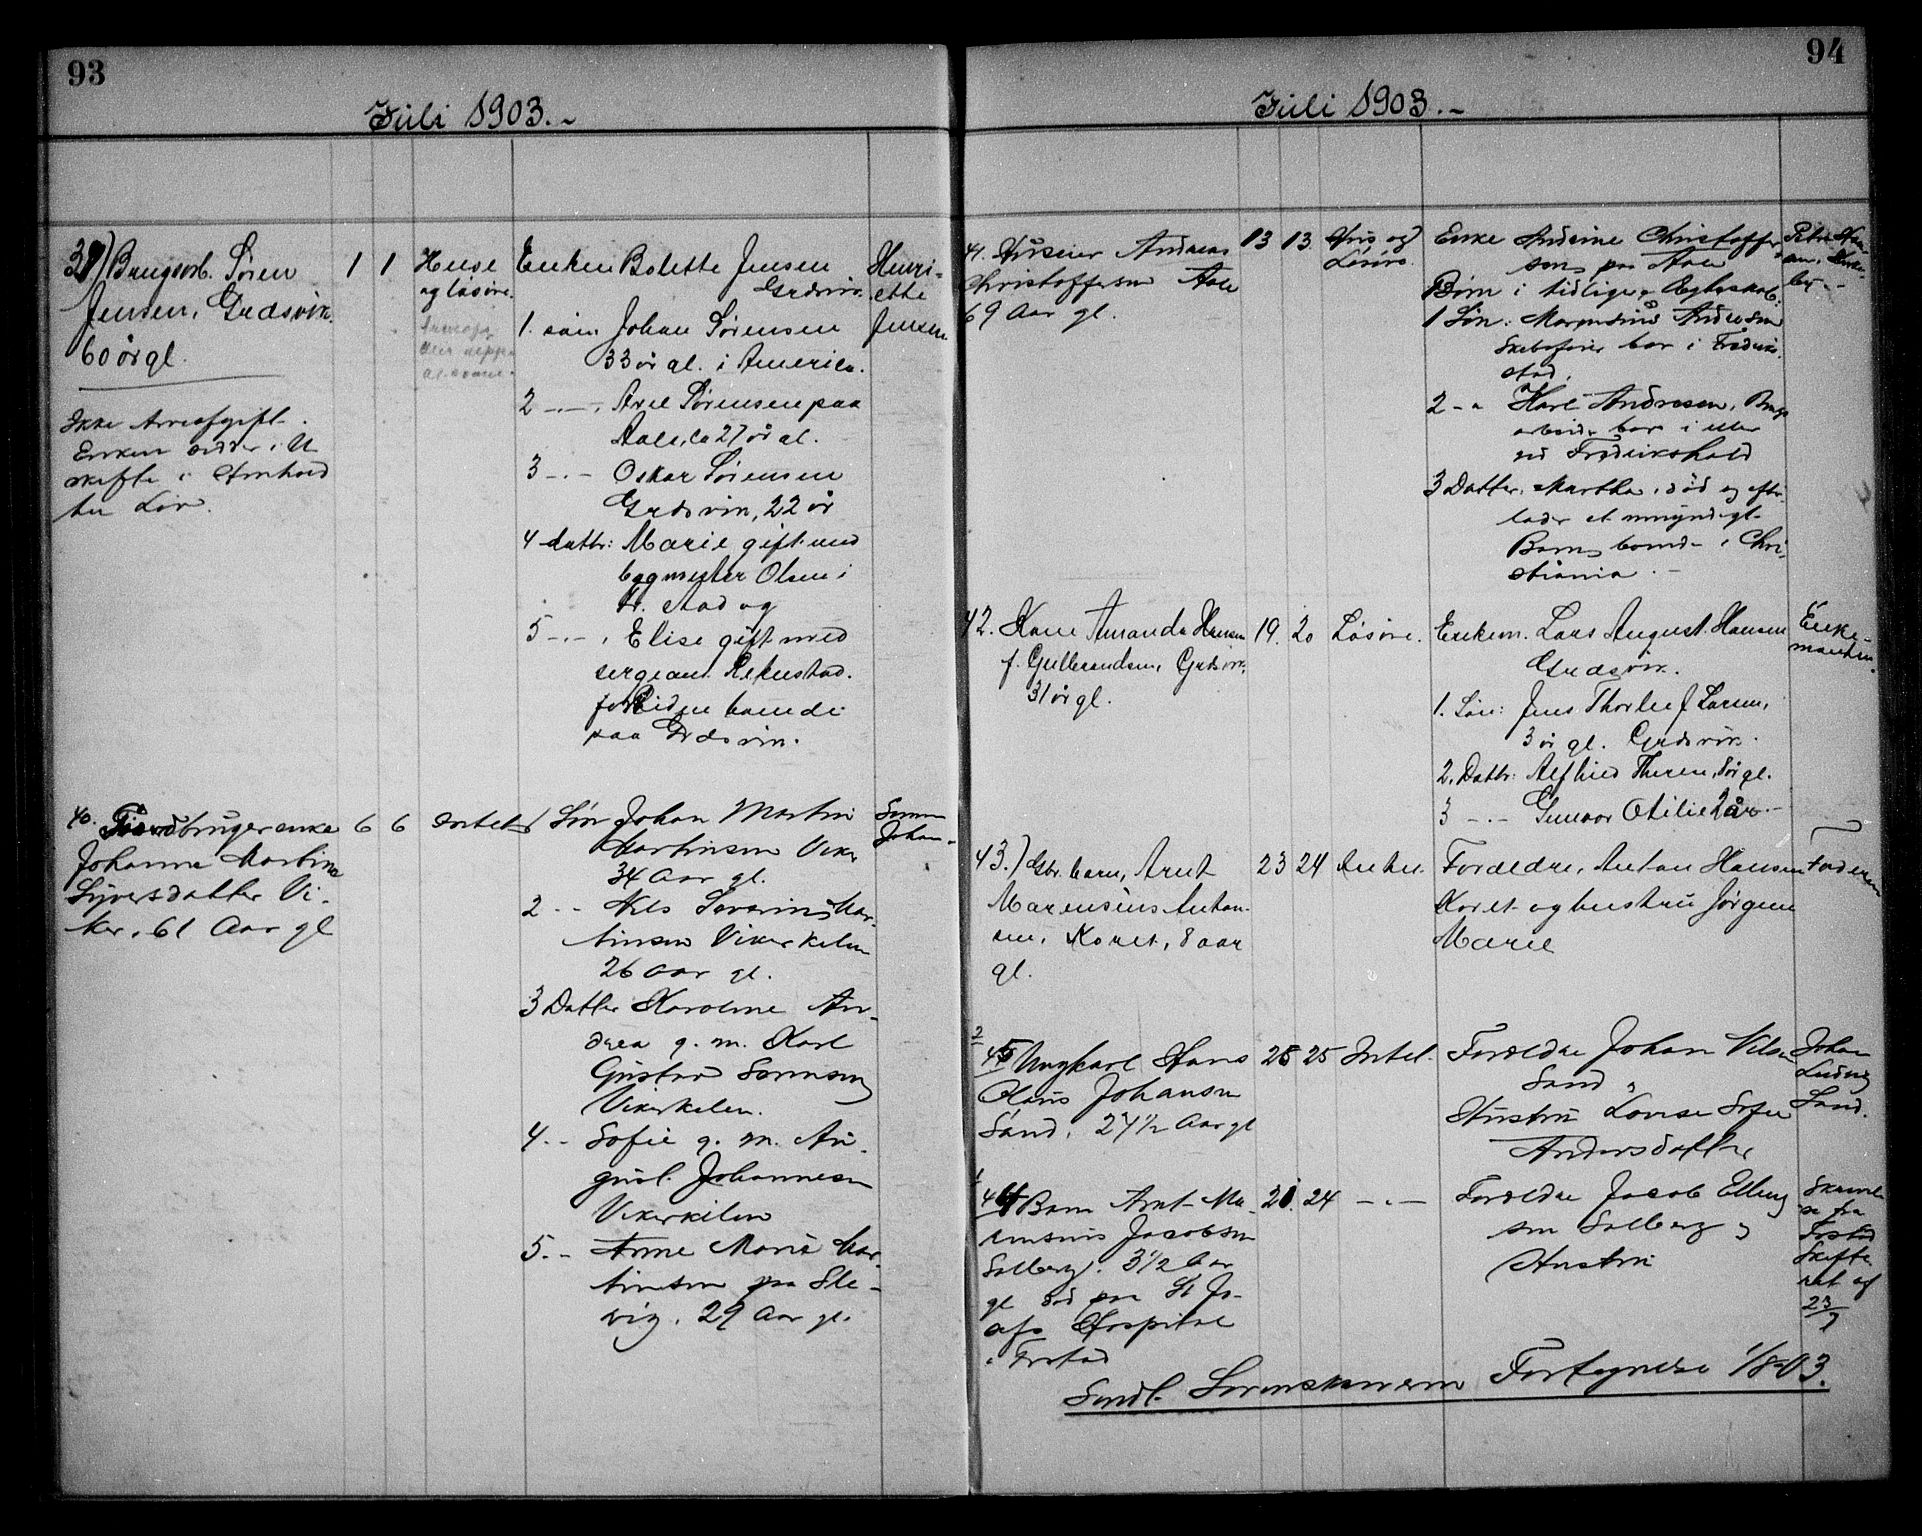 93
Juli 1903.-
39) Brugsarb. Søren
Jensen, Gredsvik.
60 år gl.
Ikke Arveafgift.
Enken sidder i U
skifte i
Lov.
1 1
Huse
og løsøre.
Enken Bolette Jensen
Gredsvik.
1. søn. Johan Sørensen
33 år gl. i Amerika.
2 -.- Sørensen paa
Aale, ca 27 år gl.
3 -.- Oskar Sørensen
Gredsvik, 22 år
4 datter: Marie gift med
bygmester Olsen i
Fr. stad og
5 -.- , Elise gift med
sergeant Rekustad.
for tiden boende
paa Gredsvik.
Henri-
ette
Jensen
40. brugerenke
Johanne Martine
Syversdatter Vi-
ker, 61 Aar gl
6 6
Intet
1 Søn Johan Martin
Martinsen Viker
34 Aar gl.
2 -- Nils Severin Mar-
tinsen Vikerkilen
26 Aar gl.
3 Datter Karoline An-
drea g. m. Karl
Gustav Sørensen
Vikerkilen.
4. -- Sofie g. m. Au-
gust Johannesen
Vikerkilen
5. -- Anne Marie Mar-
tinsen paa Sle-
vig. 29 Aar gl.
Sønnen
Johan-
94
Juli 1903.-
41. Huseier Andreas
Christoffersen Aale
69 Aar gl.
13 13
Hus og
Løsøre.
Enke Andrine Christoffer
sens paa Aale
Børn i tidligere Ægteskab:
1 Søn: Marensius Andresen
Skibsfører bor i Fredrik
stad.
2 - " Karl Andresen, Brugs
arbeider bor i eller
ved Fredrikshald
3 Datter, Martha, død og efter
lader et umyndigt
Barn, boende i Chri-
stiania. -
42. Kone Amanda Hansen
f. Gulbrandsen, Gredsvik.
31 år gl.
19. 20
Løsøre.
Enkem. Lars August Hansen
Gredsvik.
1. Søn: Jens Thorleif Larsen,
3 år gl. Gredsvik.
2. Datter: Alfhild Therese, 8 år gl.
3 -.- Gunvor Otilie 2 år. -
Enke-
manden.
43.) Gbr. barn, Arnt
Marensius Anton-
sen, Koret, 8 aar
gl.
23 24
Intet.
Forældre, Anton Hansen
Koret og hustru Jørgine
Marie
Faderen
2
45 Ungkarl Hans
Olaus Johansen
Sand. 27 1/2 Aar gl
25 25
Intet.
Forældre Johan Nilsen
Sand og
Hustru Lovise Sofie
Andersdatter
Johan
Ludvig
Sand.
1
44 Barn Arnt Ma-
rensius Jacobsen
Solberg. 3 1/2 Aar
gl død paa St Jo-
sefs Hospital
i Frstad
21. 24
-.-
Forældre Jacob Elling
sen Solberg og
Hustru
Skrivel
se fra
Frstad
Skifte
ret af
23/7
Sendt Sorenskriveren Fortegnelse 1/8-03.